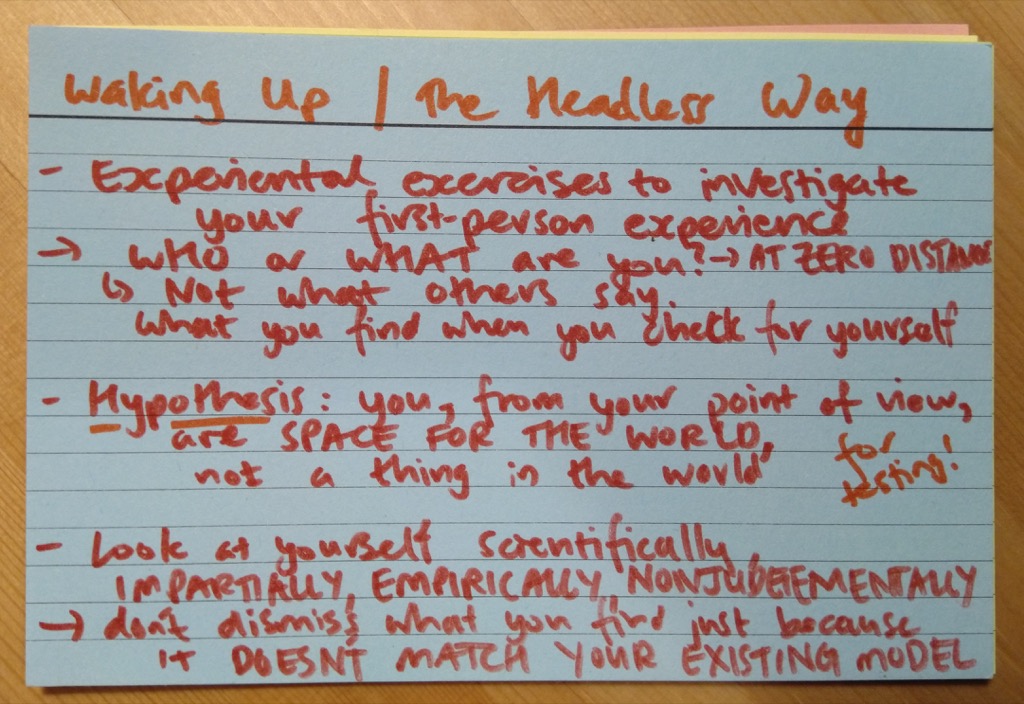 Waking Up / The Headless Way
- Experiential exercises to investigate
your first-person experience
→ WHO or WHAT are you? → AT ZERO DISTANCE
↳ Not what others say.
What you find when you check for yourself
- Hypothesis: you, from your point of view,
are SPACE FOR THE WORLD,
not a thing in the world
for
testing!
- Look at yourself scientifically,
IMPARTIALLY, EMPIRICALLY, NONJUDGEMENTALLY
→ don't dismiss what you find just because
it DOESN'T MATCH YOUR EXISTING MODEL